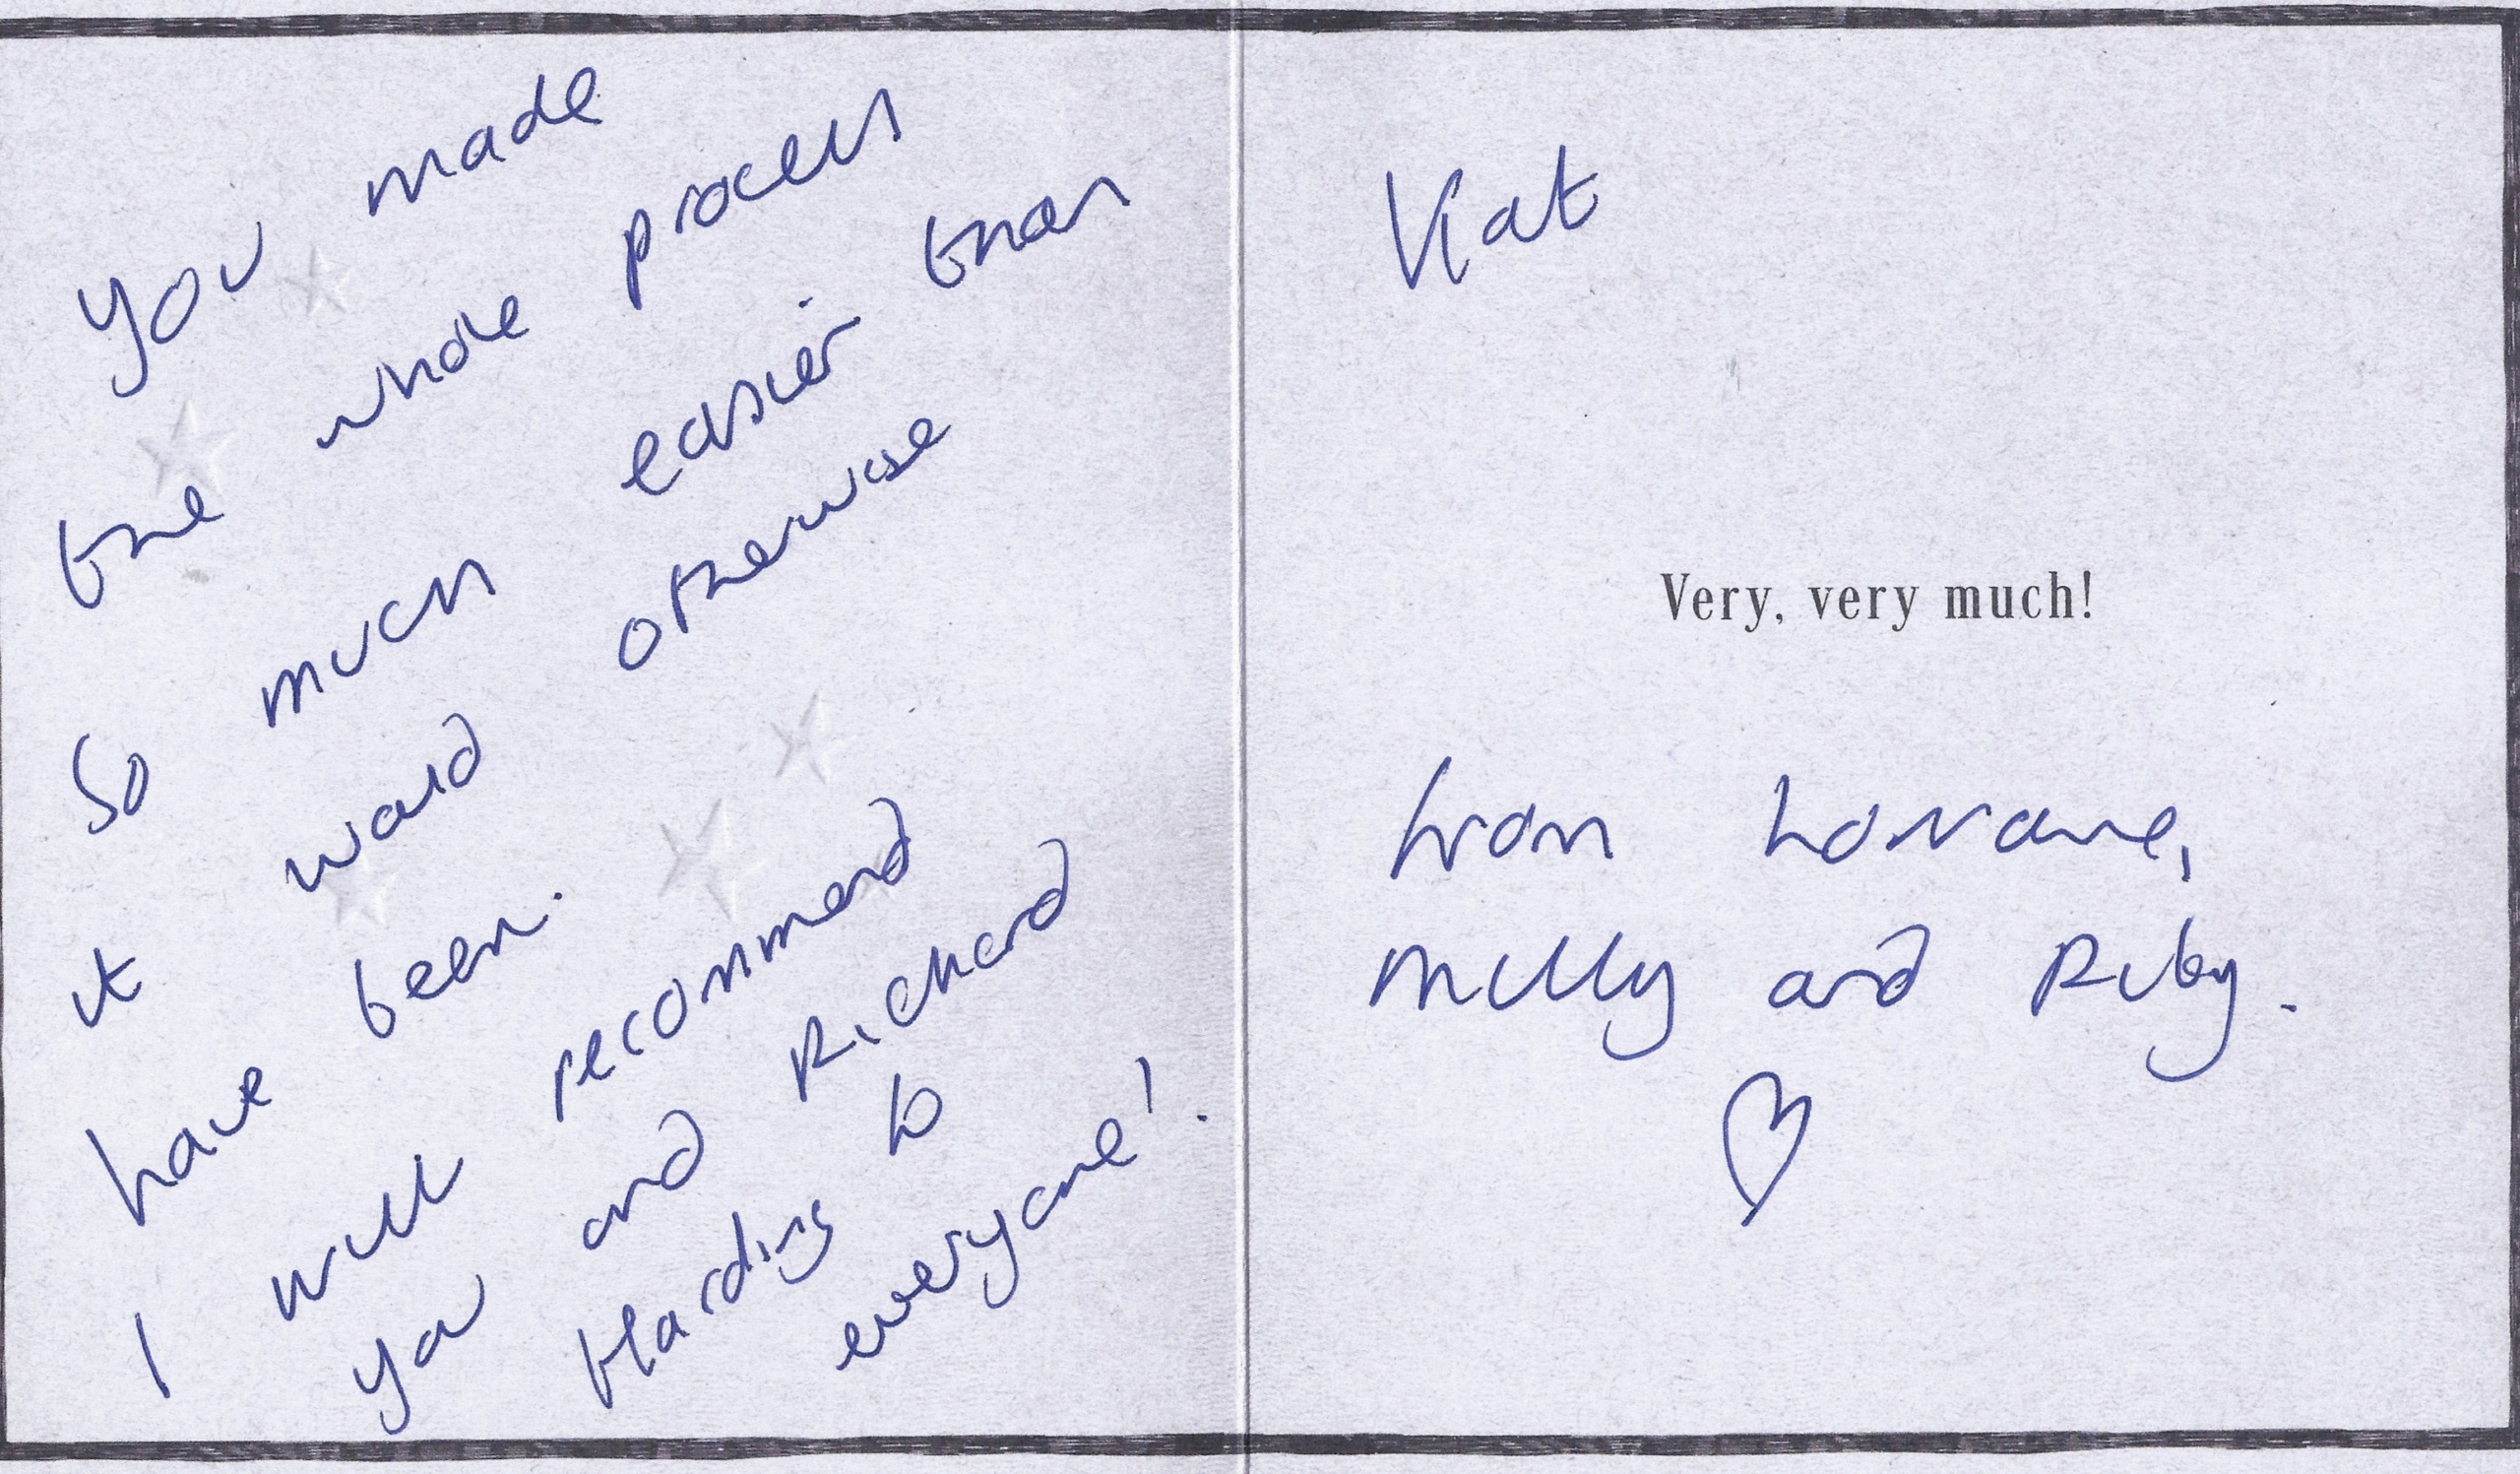 You made
the whole process
so much easier than
it would otherwise
have been.
I will recommend
you and Richard
Harding to
everyone!
Kat
Very, very much!
from Lorraine,
Milly and Ruby.